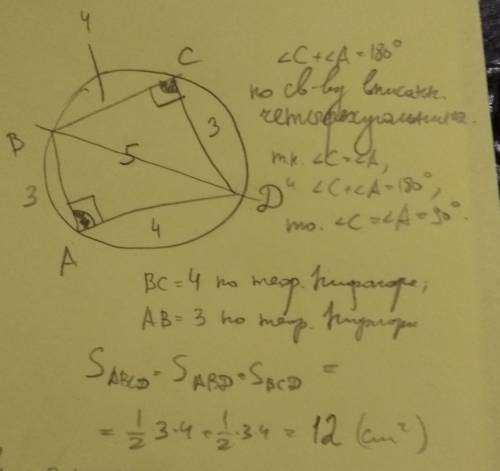 4
C
B
3
5
D
3
4
A
∠C+∠A=180°
по св-ву вписанн.
четырехугольника.
т.к. ∠C=∠A,
и ∠C+∠A=180°,
то. ∠C=∠A=90°.
BC=4 по теор. Пифагора;
AB=3 по теор. Пифагора
S_ABCD = S_ABD + S_BCD =
= 1/2 3·4 + 1/2 ·3·4 = 12 (cm²)